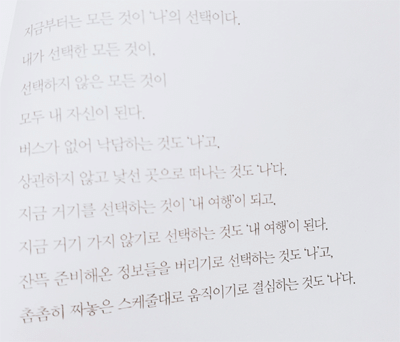 지금부터는 모든 것이 '나'의 선택이다.
내가 선택한 모든 것이,
선택하지 않은 모든 것이
모두 내 자신이 된다.
버스가 없어 낙담하는 것도 '나'고,
상관하지 않고 낯선 곳으로 떠나는 것도 '나'다.
지금 거기를 선택하는 것이 '내 여행'이 되고,
지금 거기 가지 않기로 선택하는 것도 '내 여행'이 된다.
잔뜩 준비해온 정보들을 버리기로 선택하는 것도 '나'고,
촘촘히 짜놓은 스케줄대로 움직이기로 결심하는 것도 '나'다.